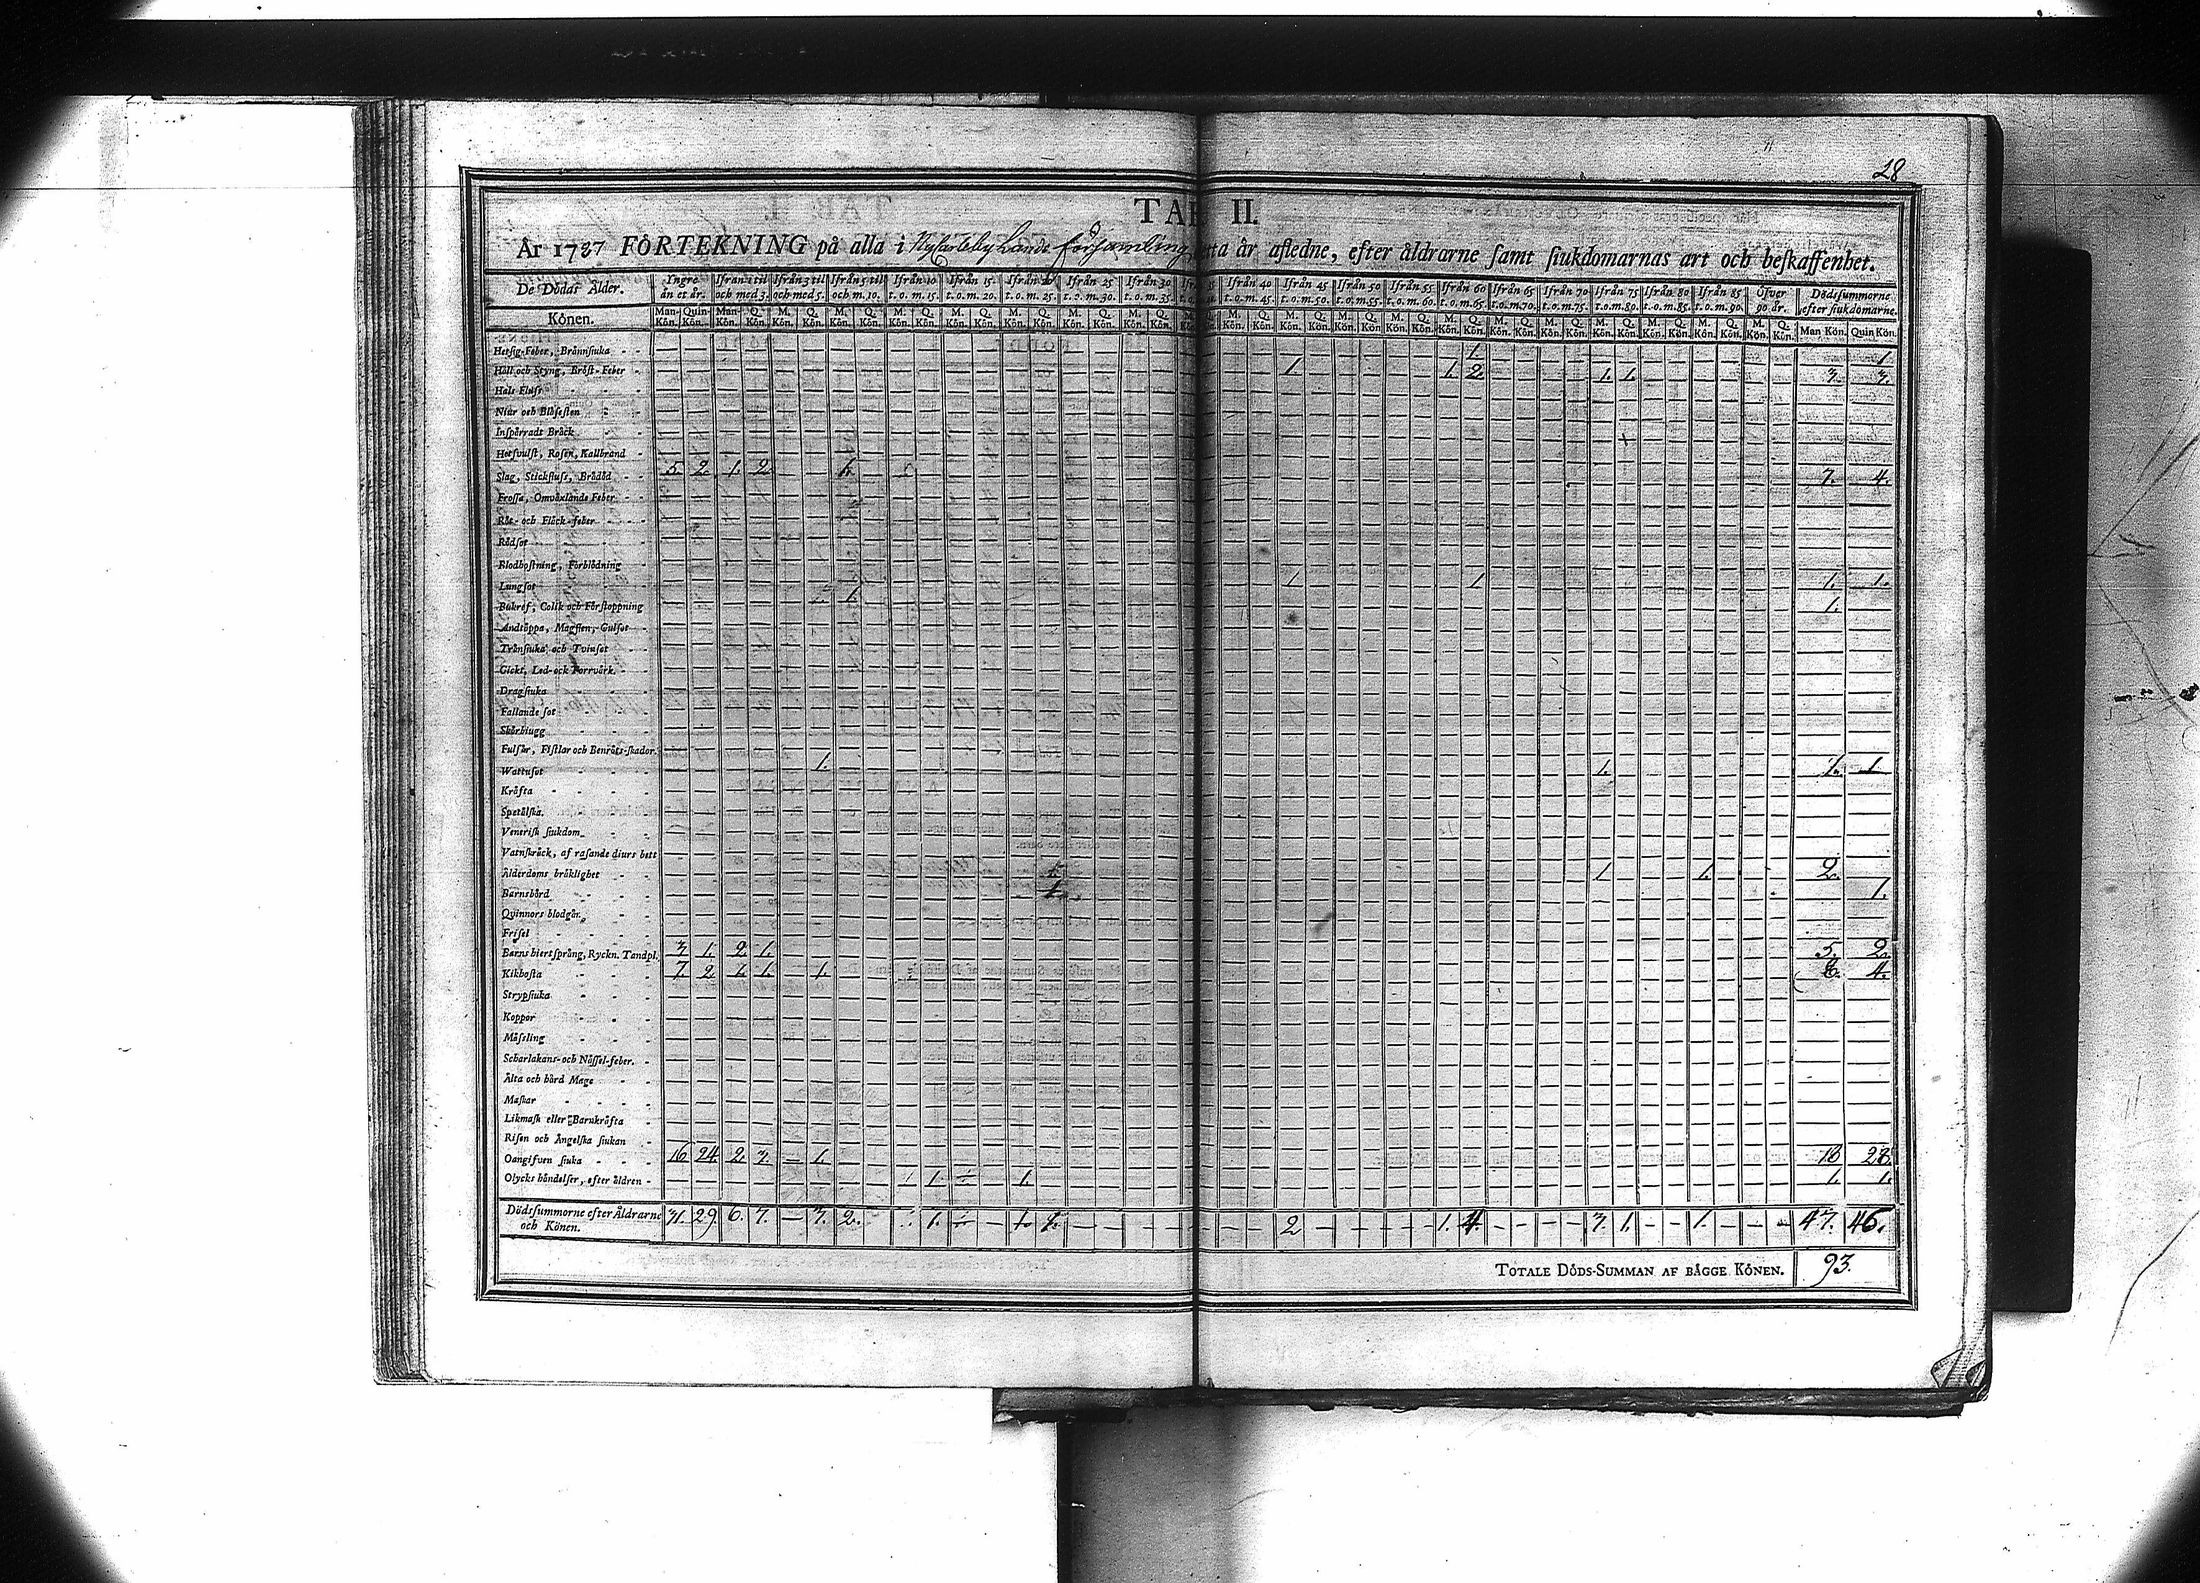 28
TAB II.
År 1787 FÖRTEKNING på alla i NyCarleby Lands församling detta år afledne, efter åldrarne samt siukdomarnas art och beskaffenhet.
De Dödas Ålder. Yngre än et år. Ifrån 1 til och med 3. Ifrån 3 till och med 5. Ifrån 5 till och m. 10. Ifrån 10 t.o.m. 15. Ifrån 15 t.o.m. 20. Ifrån 20 t.o.m. 25. Ifrån 25 t.o.m. 30. Ifrån 30 t.o.m. 35. Ifrån 40 t.o.m. 45. Ifrån 45 t.o.m. 50. Ifrån 50 t.o.m. 55. Ifrån 55 t.o.m. 60. Ifrån 60 t.o.m. 65. Ifrån 65 t.o.m. 70. Ifrån 70 t.o.m. 75. Ifrån 75 t.o.m. 80. Ifrån 80 t.o.m. 85. Ifrån 85 t.o.m. 90. Öfver 90 år. Dödssummorne efter siukdomarne.
Könen. Man-Kön. Quin-Kön. Man-Kön. Q. Kön. M. Kön. Q. Kön. M. Kön. Q. Kön. Man Kön. Quin Kön.
Hetsig-Feber, Brännsiuka 1 1
Håll och Styng, Bröst-Feber 1 1. 2 1. 1. 3. 3.
Hals Fluss
Niur och Blåsesten
Inspärradt Bråck
Hetsvulst, Rosen, Kallbrand
Slag, Stickfluss, Brådöd 5 2 1. 2 1. 7. 4.
Frossa, Omväxlande Feber
Röt- och Fläck-feber
Rödsot
Blodhostning, Förblödning
Lungsot 1 1 1. 1.
Bukref, Colik och Förstoppning 1. 1.
Andtäppa, Magsten, Gulsot
Trånsiuka och Tvinsot
Gickt, Led- och Torrvärk
Dragsiuka
Fallande sot
Skörbiugg
Fulsår, Fistlar och Benröts-skador.
Wattusot 1. 1. 1. 1
Kräfta
Spetälska.
Venerisk siukdom
Vatnskräck, af rasande diurs bett
Ålderdoms bräklighet 1 1. 2.
Barnsbörd 1. 1.
Qvinnors blodgång
Frisel
Barns hiertsprång, Ryckn. Tandpl. 3 1. 2 1. 5. 2.
Kikhosta 7. 2 1. 1. 1. 8. 4.
Strypsiuka
Koppor
Mässling
Scharlakans- och Nässel-feber.
Älta och hård Mage
Maskar
Likmask eller Barnkräfta
Risen och Ängelska siukan
Oangifven siuka 16 24. 2. 3. 1. 18 28.
Olycks händelser, efter åldren 1. 1. 1. 1.
Dödssummorne efter Åldrarne och Könen. 31. 29. 6. 7. 3. 2. 1. 1. 1. 2 1. 4. 3. 1. 1. 47. 46.
TOTALE DÖDS-SUMMAN AF BÄGGE KÖNEN. 93.